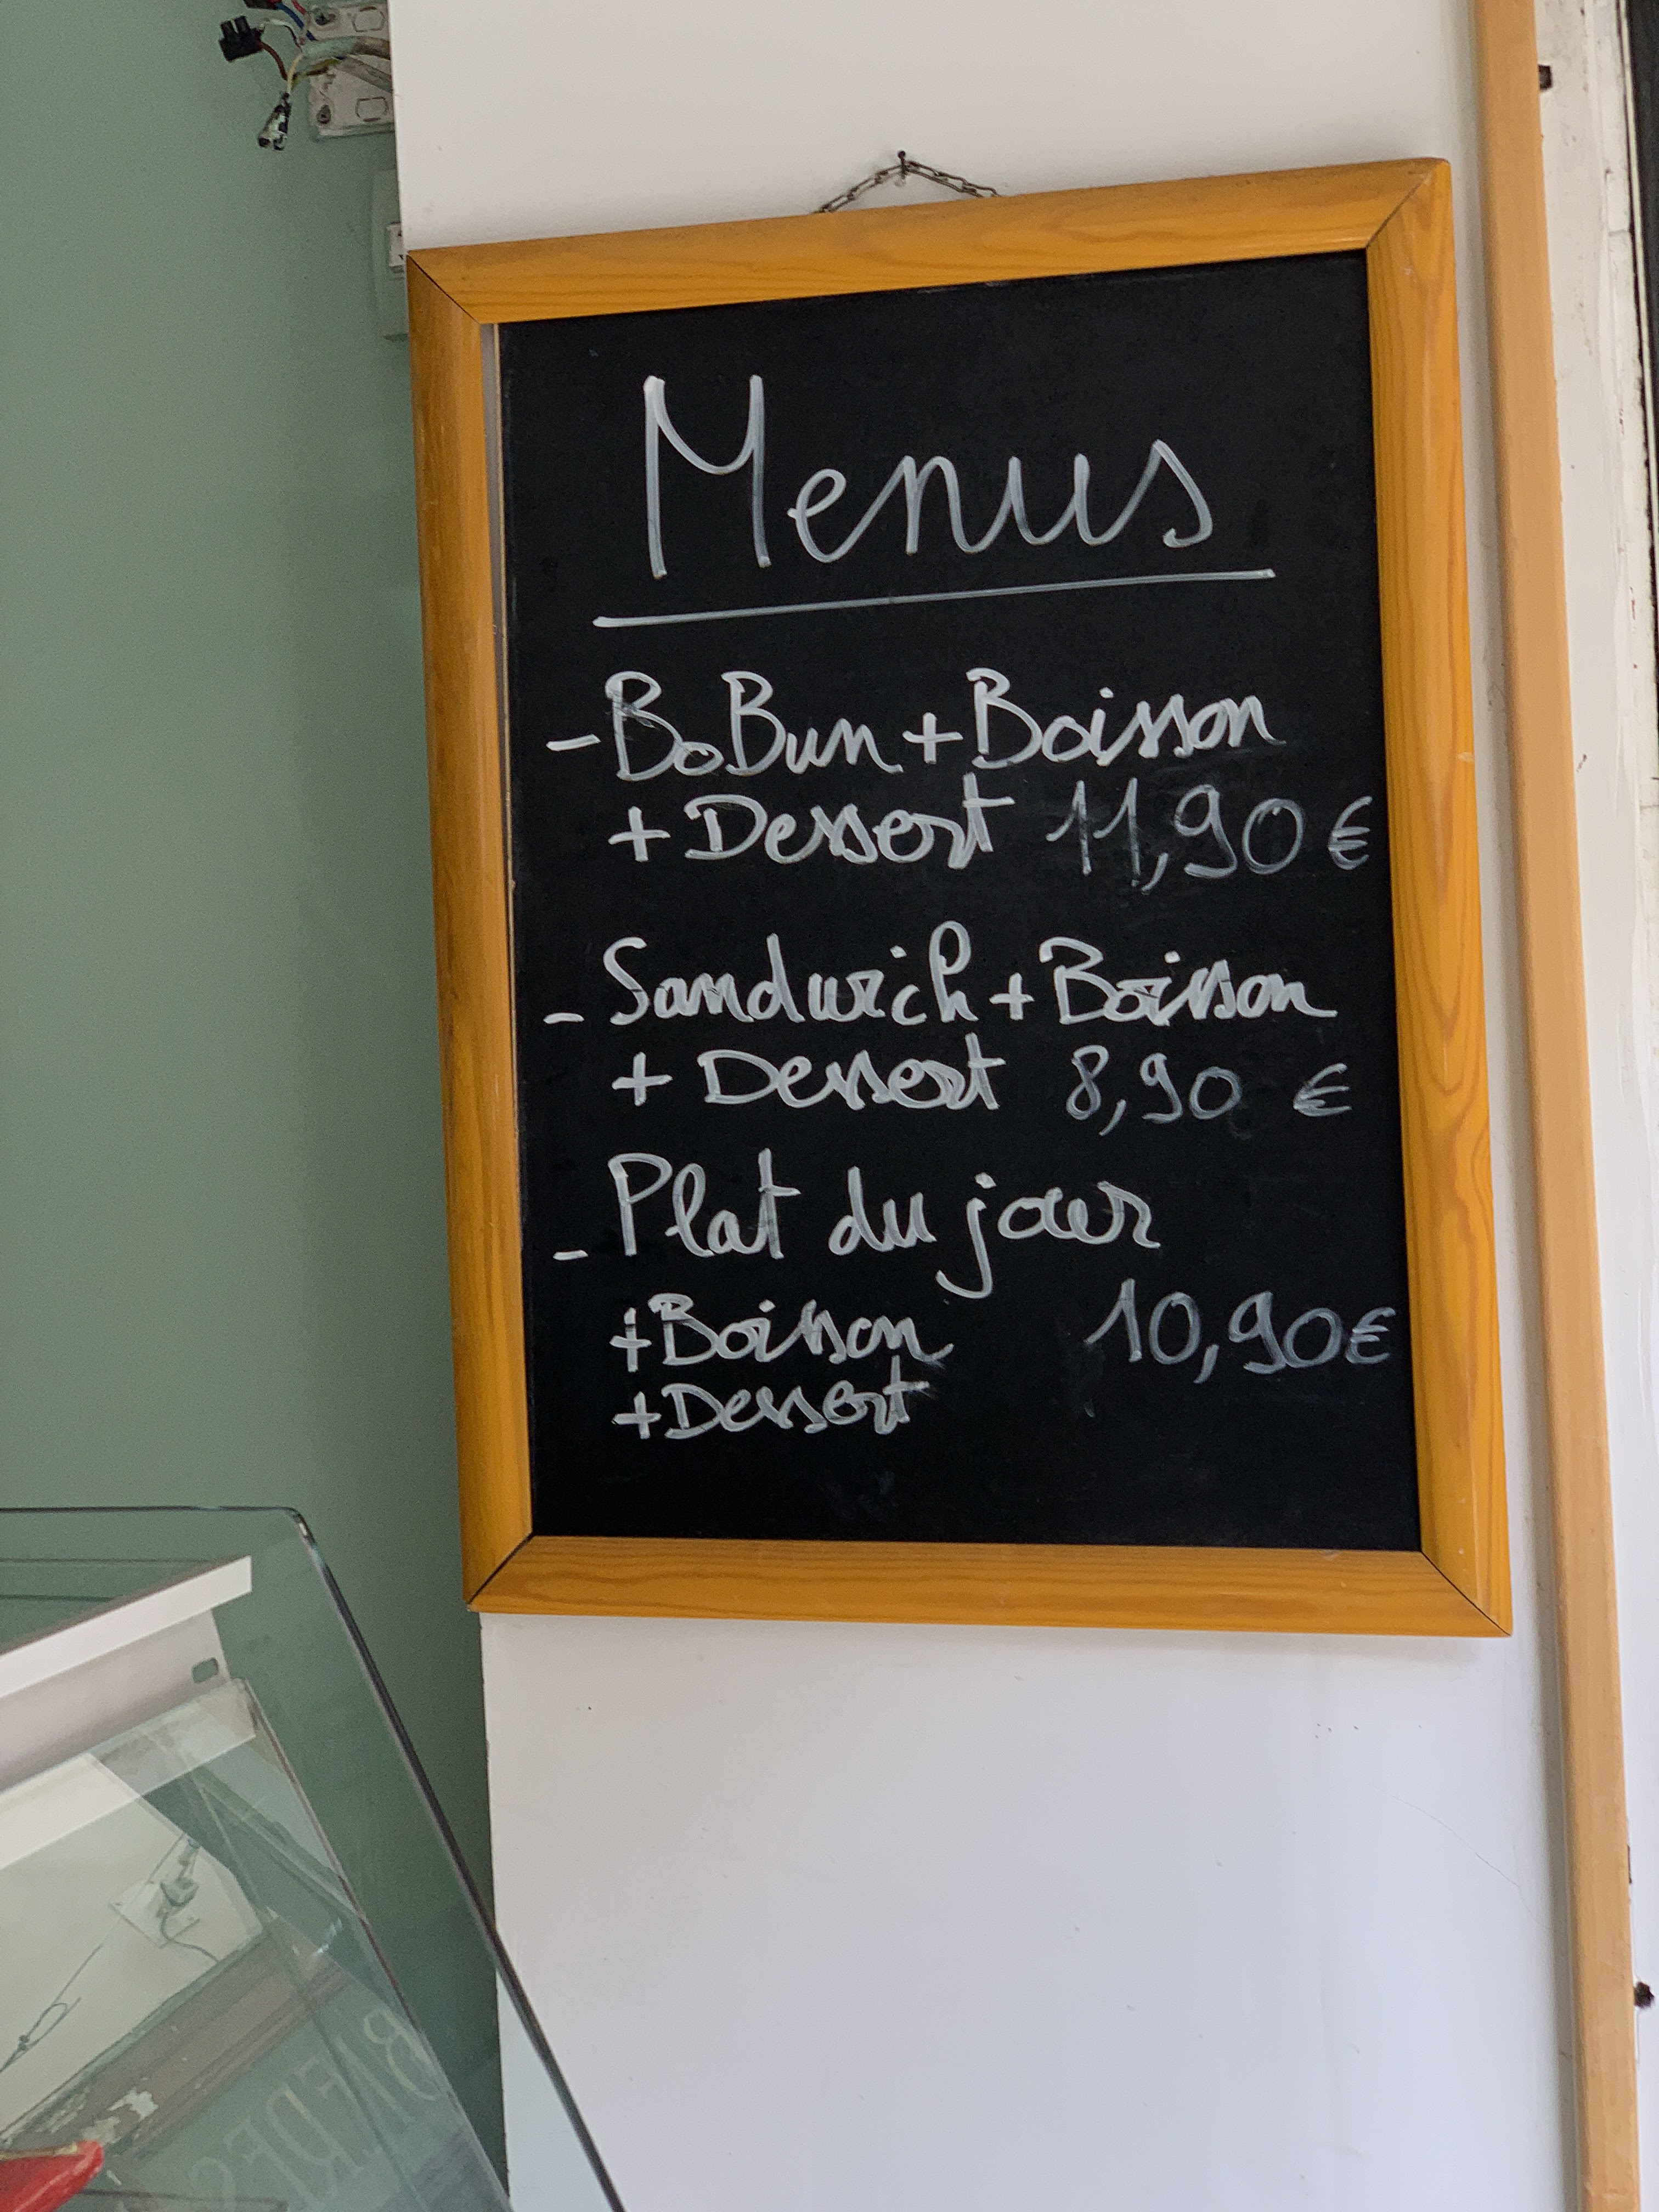 Menus
- BoBun + Boisson
+ Dessert 11,90 €
- Sandwich + Boisson
+ Dessert 8,90 €
- Plat du jour
+ Boisson 10,90 €
+ Dessert